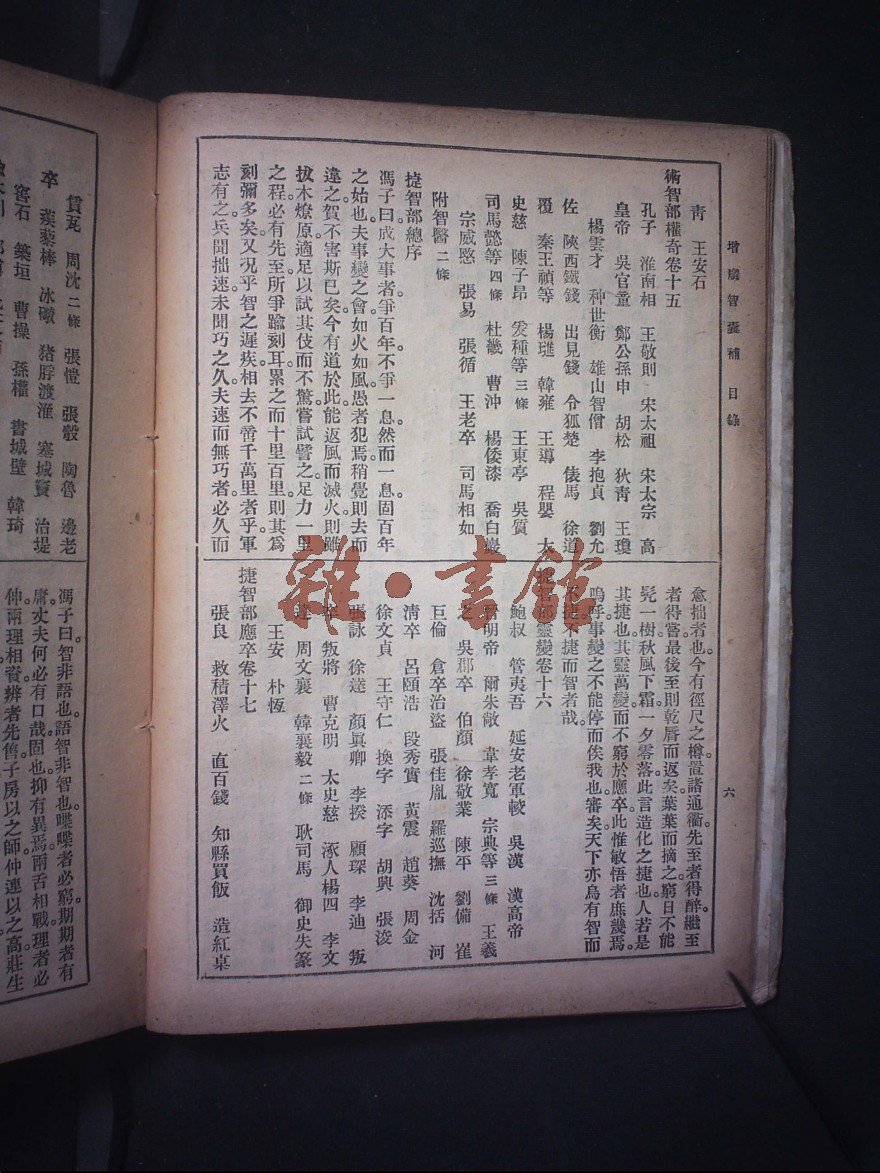 增廣智囊補 目錄
六
青 王安石
術智部權奇卷十五
孔子 淮南相 王敬則 宋太祖 宋太宗 高
皇帝 吳官童 鄭公孫申 胡松 狄青 王瓊
楊雲才 种世衡 雄山智僧 李抱貞 劉允
佐 陝西鐵錢 出見錢 令狐楚 俵馬 徐道
覆 秦王禎等 楊璡 韓雍 王導 程嬰 太
史慈 陳子昂 爰種等三條 王東亭 吳質
司馬懿等四條 杜畿 曹沖 楊倭漆 喬白巖
宗威愍 張易 張循 王老卒 司馬相如
附智醫二條
捷智部總序
馮子曰成大事者爭百年。不爭一息。然而一息。固百年
之始也。夫事變之會。如火如風。愚者犯焉。稍覺則去而
違之。賀不害斯巳矣。今有道於此。能返風而滅火。則雖
拔木燎原。適足以試其伎而不驚。嘗試譬之。足力一里
之程。必有先至。所爭踰刻耳。累之而十里百里。則其爲
刻彌多矣。又況乎智之遲疾。相去不啻千萬里者乎。軍
志有之。兵聞拙速。未聞巧之久。夫速而無巧者。必久而
愈拙者也。今有徑尺之樽。置諸通衢。先至者得醉。繼至
者得嘗。最後至則乾脣而返矣。葉葉而摘之。窮日不能
髡一樹。秋風下霜。一夕零落。此言造化之捷也。人若是
其捷也。其靈萬變。而不窮於應卒。此惟敏悟者庶幾焉。
嗚呼。事變之不能停而俟我也。審矣。天下亦烏有智而
不捷。不捷而智者哉。
捷智部靈變卷十六
鮑叔 管夷吾 延安老軍較 吳漢 漢高帝
晉明帝 爾朱敞 韋孝寬 宗典等三條 王羲
之 吳郡卒 伯顏 徐敬業 陳平 劉備 崔
巨倫 倉卒治盜 張佳胤 羅巡撫 沈括 河
清卒 呂頤浩 段秀實 黃震 趙葵 周金
徐文貞 王守仁 換字 添字 胡興 張浚
張詠 徐達 顏眞卿 李揆 顧琛 李迪 叛
卒 叛將 曹克明 太史慈 涿人楊四 李文
達 周文襄 韓襄毅二條 耿司馬 御史失篆
王安 朴恆
捷智部應卒卷十七
張良 救積澤火 直百錢 知縣買飯 造紅桌
賃瓦 周沈二條 張愷 張瑴 陶魯 邊老
卒 蒺藜棒 冰礮 猪脬渡淮 塞城竇 治堤
窖石 築垣 曹操 孫權 書城壁 韓琦
馮子曰。智非語也。語智非智也。喋喋者必窮。期期者有
庸。丈夫何必有口哉。固也。抑有異焉。兩舌相戰。理者必
伸。兩理相資。辨者先售。子房以之師。仲連以之高。莊生
雜·書館